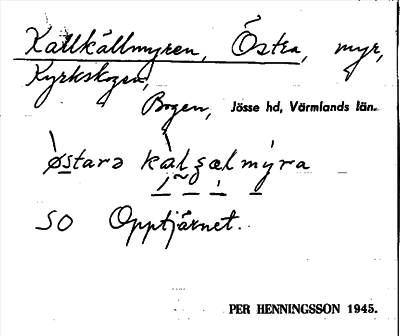 Kallkällmyren, Östra, myr,
Kyrkskogen,
Bogen, Jösse hd, Värmlands län.
østarə kalʒælmyra
SO Opptjärnet.
PER HENNINGSSON 1945.